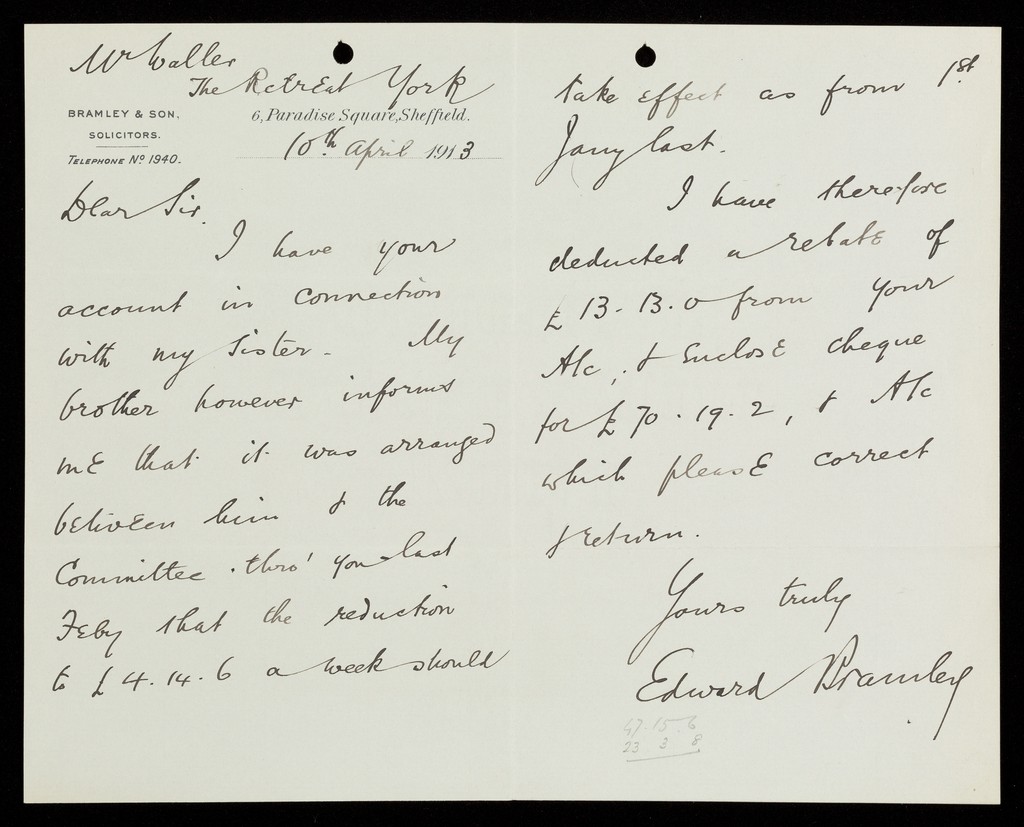 Mr Waller
The Retreat York
BRAMLEY & SON,
SOLICITORS.
TELEPHONE No 1940.
6, Paradise Square, Sheffield.
10th April 1913
Dear Sir,
I have your
account in connection
with my Sister - My
brother however informs
me that it was arranged
between him & the
Committee thro' you last
Feby that the reduction
to £4.14.6 a week should
take effect as from 1st
Jany last.
I have therefore
deducted a rebate of
£13-13.0 from your
A/c, & Enclose cheque
for £70.19.2, & A/c
which please correct
& return.
Yours truly
Edward Bramley
47.15.6
23 3 8